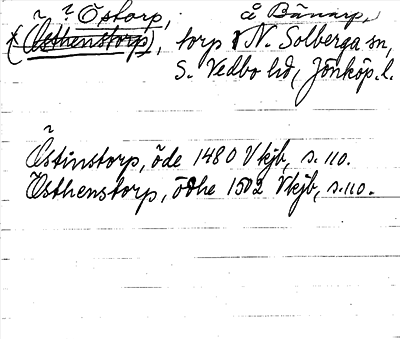 ? Östorp, å Bänarp,
* (Østhenstorp), torp N. Solberga sn,
S. Vedbo hd, Jönköp. l.
Østinstorp, öde 1480 Vkjb, s. 110.
Østhenstorp, ödhe 1502 Vkjb, s. 110.